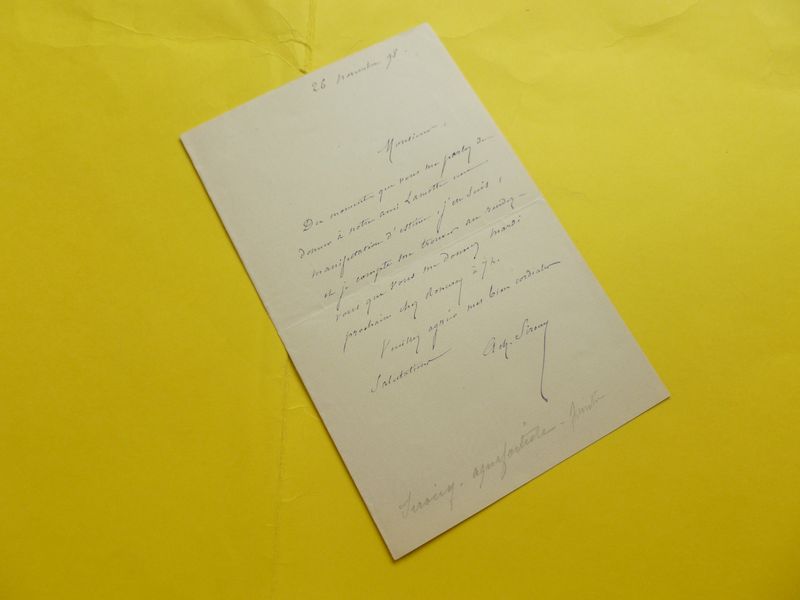 26 novembre 98.
Monsieur,
Du moment que vous me parlez de
donner à notre ami Lamotte une
manifestation d'estime, j'en suis,
et je compte me trouver au rendez-
vous que vous me donnez mardi
prochain chez à 7 h.
Veuillez agréer mes bien cordiales
salutations
Ach. Sirouy
Sirouy. aquafortiste -